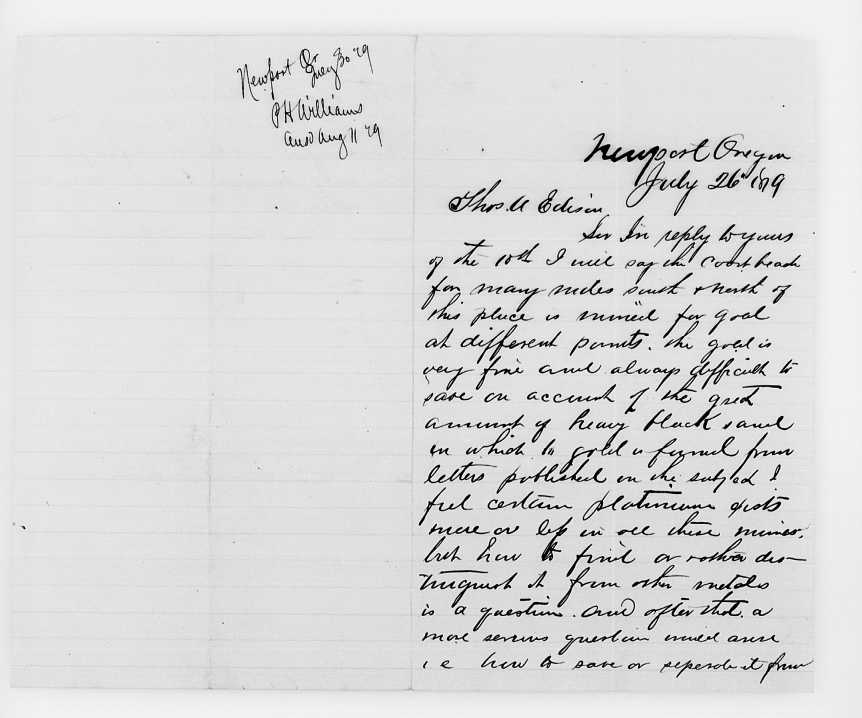 Newport Or
July 30 79
P H Williams
ansd Aug 11 79
Newport Oregon
July 26th 1879
Thos. A Edison
Sir In reply to yours
of the 10th I will say the Coast beach
for many miles south & north of
this place is mined for gold
at different points. the gold is
very fine and always difficult to
save on account of the great
amount of heavy black sand
in which the gold is found from
letters published on the subject I
feel certain platinum exists
more or less in all these mines.
but how to find or rather dis-
tinguish it from other metals
is a question. and after that a
more serious question would arise
i e how to save or seperate it from